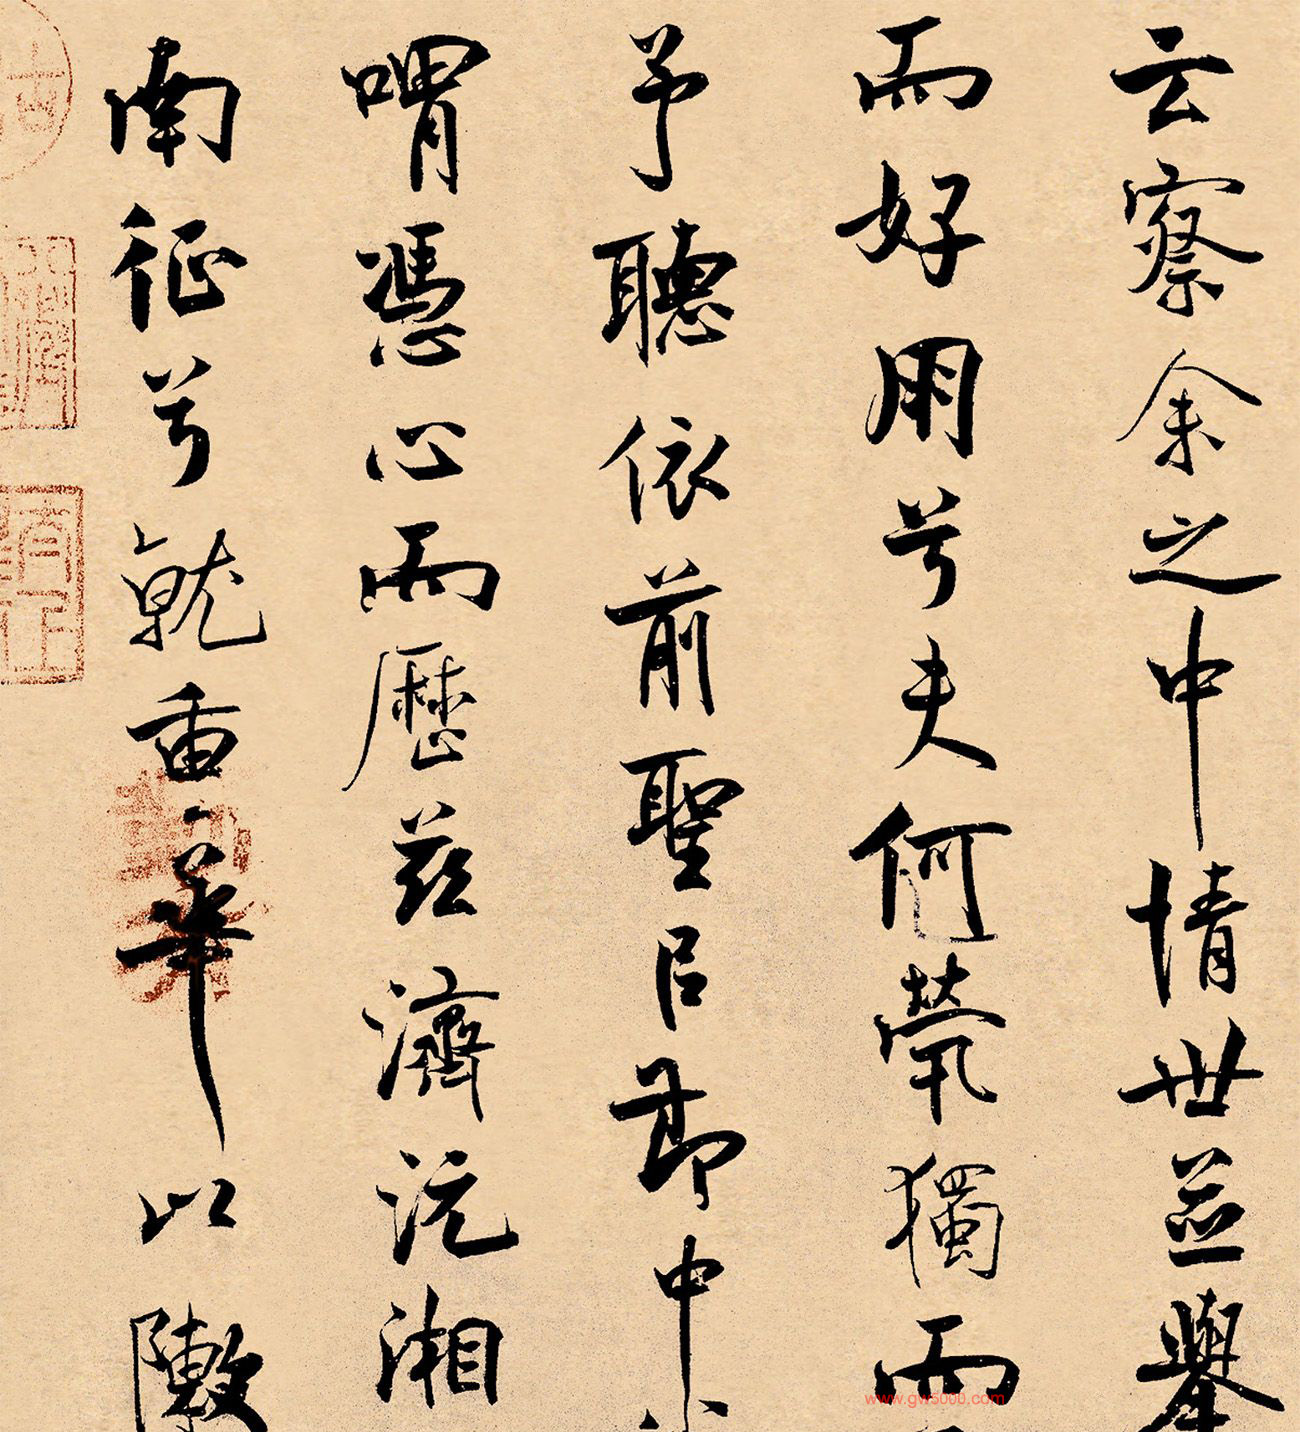 云察余之中情世並舉
而好朋兮夫何茕獨而
予聽依前聖以節中
喟憑心而歷茲濟沅湘
南征兮就重華以敶
www.gw5000.com